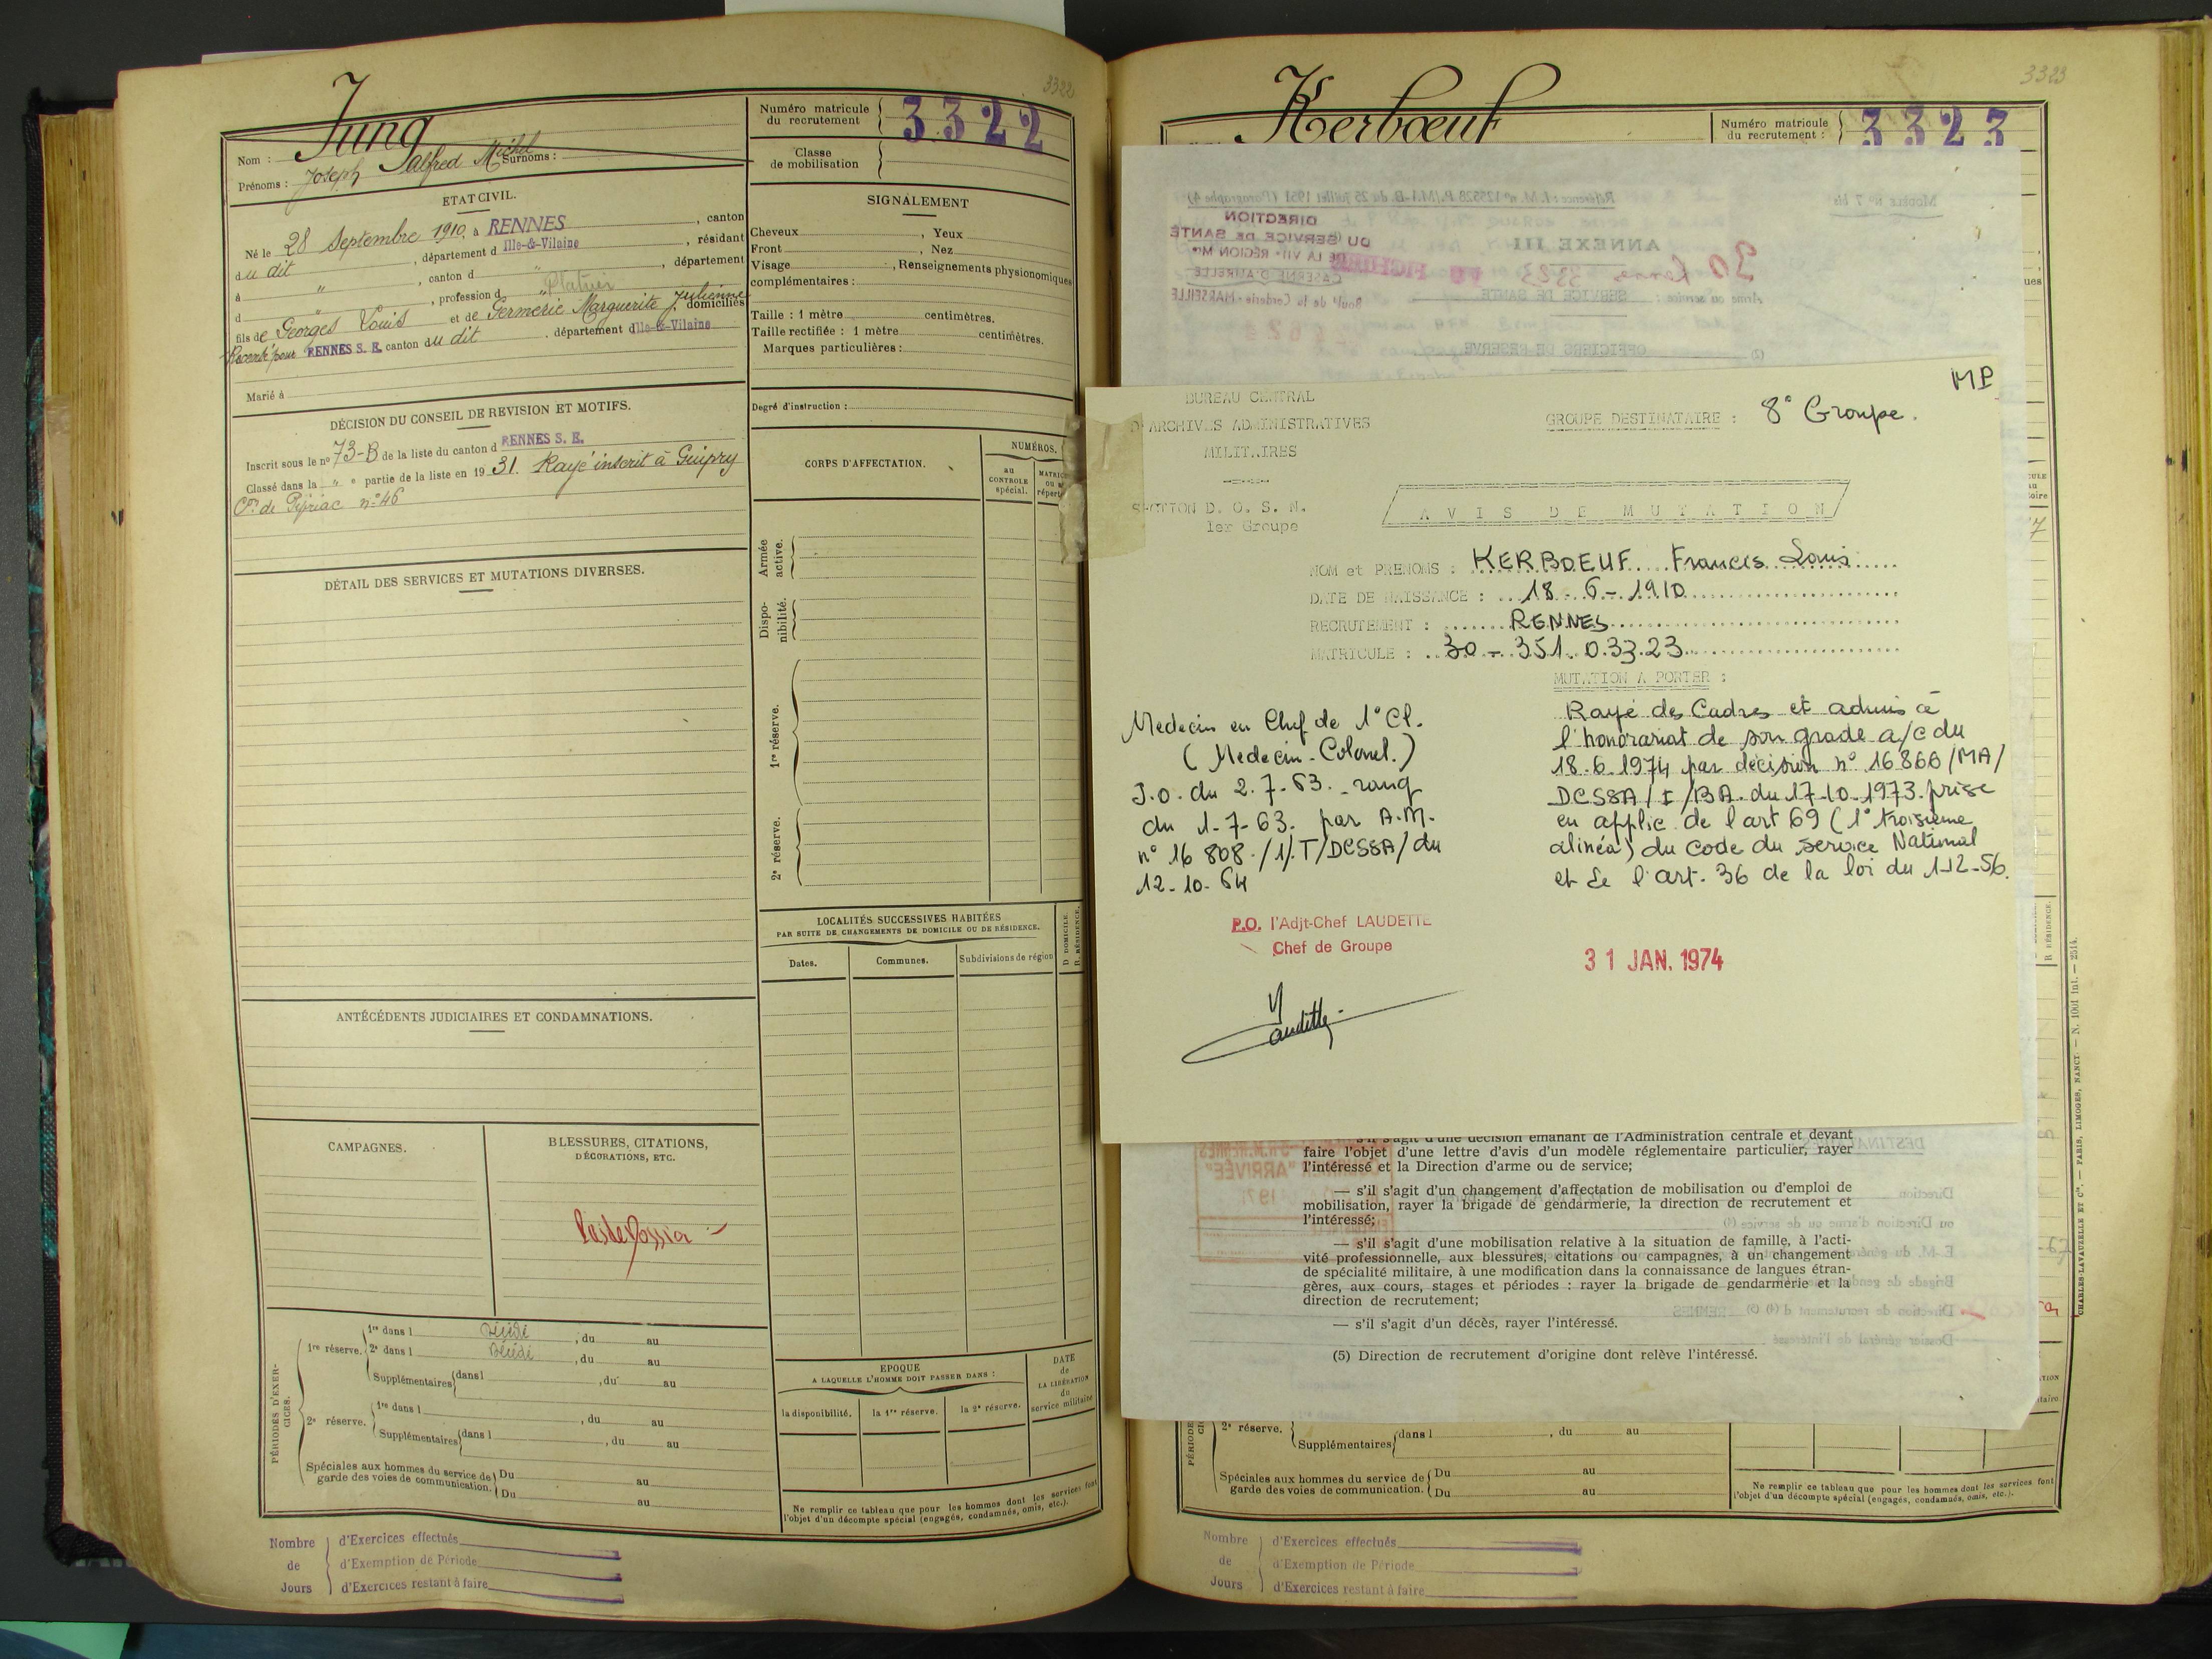 3322
Jung
Nom :
Prénoms : Joseph Alfred Michel Surnoms :
Numéro matricule
du recrutement
3322
Classe
de mobilisation
ETAT CIVIL.
Né le 28 Septembre 1910, à RENNES, canton
du dit, département d Ille-&-Vilaine, résidant
à ", canton d ", département
d ", profession d Platrier
fils de Georges Louis et de Germerie Marguerite Julienne domiciliés
Recensé pour RENNES S. E. canton du dit, département d Ille-&-Vilaine
Marié à
SIGNALEMENT
Cheveux, Yeux
Front, Nez
Visage, Renseignements physionomiques
complémentaires :
Taille : 1 mètre centimètres.
Taille rectifiée : 1 mètre centimètres.
Marques particulières :
Degré d'instruction :
DÉCISION DU CONSEIL DE REVISION ET MOTIFS.
Inscrit sous le n° 73-B de la liste du canton d RENNES S. E.
Classé dans la " e partie de la liste en 1931. Rayé inscrit à Guipry
Con de Pipriac n° 46
CORPS D'AFFECTATION.
NUMÉROS.
au
CONTROLE
spécial.
Armée
active.
Dispo-
nibilité.
1re réserve.
2e réserve.
DÉTAIL DES SERVICES ET MUTATIONS DIVERSES.
LOCALITÉS SUCCESSIVES HABITÉES
PAR SUITE DE CHANGEMENTS DE DOMICILE OU DE RÉSIDENCE.
D DOMICILE.
R RÉSIDENCE.
Dates.
Communes.
Subdivisions de région
ANTÉCÉDENTS JUDICIAIRES ET CONDAMNATIONS.
CAMPAGNES.
BLESSURES, CITATIONS,
DÉCORATIONS, ETC.
Pas de dossier
PÉRIODES D'EXER-
CICES.
1re réserve.
1re dans l Décédé, du au
2e dans l Décédé, du au
Supplémentaires dans l, du au
2e réserve.
1re dans l, du au
Supplémentaires dans l, du au
Spéciales aux hommes du service de
garde des voies de communication.
Du au
Du au
EPOQUE
A LAQUELLE L'HOMME DOIT PASSER DANS :
DATE
de
LA LIBÉRATION
du
service militaire
la disponibilité.
la 1re réserve.
la 2e réserve.
Ne remplir ce tableau que pour les hommes dont les services font
l'objet d'un décompte spécial (engagés, condamnés, omis, etc.).
Nombre
de
Jours
d'Exercices effectués
d'Exemption de Période
d'Exercices restant à faire
3323
Kerbœuf
Numéro matricule
du recrutement :
3323
Modèle n° 7 bis
Référence : I. M. n° 125528 P.M./I-B. du 25 juillet 1951 (Paragraphe 4)
DIRECTION
DU SERVICE DE SANTÉ
DE LA VII° RÉGION Mre
CASERNE D'AURELLE
Boult de la Corderie - MARSEILLE
ANNEXE III
Arme ou service : SERVICE DE SANTE
OFFICIERS DE RESERVE
MP
BUREAU CENTRAL
D'ARCHIVES ADMINISTRATIVES
MILITAIRES
SECTION D. O. S. N.
1er Groupe
GROUPE DESTINATAIRE : 8° Groupe.
AVIS DE MUTATION
NOM et PRENOMS : KERBOEUF Francis Louis
DATE DE NAISSANCE : 18-6-1910
RECRUTEMENT : RENNES
MATRICULE : 30-351.0.33.23
MUTATION A PORTER :
Medecin en Chef de 1° Cl.
(Medecin-Colonel.)
J.O. du 2.7-63. rang
du 1-7-63. par A.M.
n° 16 808./1/.T/DCSSA/du
12-10-64
Rayé des Cadres et admis à
l'honorariat de son grade a/c du
18.6.1974 par décision n° 16866/MA/
DCSSA/I/BA du 17-10-1973 prise
en applic. de l'art 69 (1° troisième
alinéa) du Code du Service National
et de l'art. 36 de la loi du 1-12-56.
P.O. l'Adjt-Chef LAUDETTE
Chef de Groupe
31 JAN. 1974
Laudette
s'il s'agit d'une décision émanant de l'Administration centrale et devant
faire l'objet d'une lettre d'avis d'un modèle réglementaire particulier, rayer
l'intéressé et la Direction d'arme ou de service;
— s'il s'agit d'un changement d'affectation de mobilisation ou d'emploi de
mobilisation, rayer la brigade de gendarmerie, la direction de recrutement et
l'intéressé;
— s'il s'agit d'une mobilisation relative à la situation de famille, à l'acti-
vité professionnelle, aux blessures, citations ou campagnes, à un changement
de spécialité militaire, à une modification dans la connaissance de langues étran-
gères, aux cours, stages et périodes : rayer la brigade de gendarmerie et la
direction de recrutement;
— s'il s'agit d'un décès, rayer l'intéressé.
(5) Direction de recrutement d'origine dont relève l'intéressé.
2e réserve.
Supplémentaires dans l, du au
Spéciales aux hommes du service de
garde des voies de communication.
Du au
Du au
Ne remplir ce tableau que pour les hommes dont les services font
l'objet d'un décompte spécial (engagés, condamnés, omis, etc.).
R RÉSIDENCE.
CHARLES-LAVAUZELLE ET Cie. — PARIS, LIMOGES, NANCY. — N. 1001 Int. — 2514.
Nombre
de
Jours
d'Exercices effectués
d'Exemption de Période
d'Exercices restant à faire